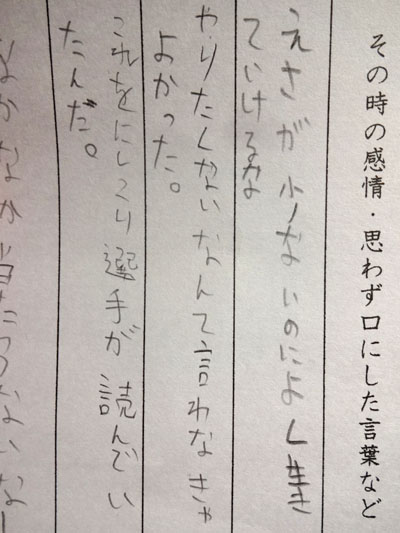 その時の感情・思わず口にした言葉など
えさが少ないのによく生き
ていけるな
やりたくないなんて言わなきゃ
よかった。
これをにしこり選手が読んでい
たんだ。
なかなか当たらないなー